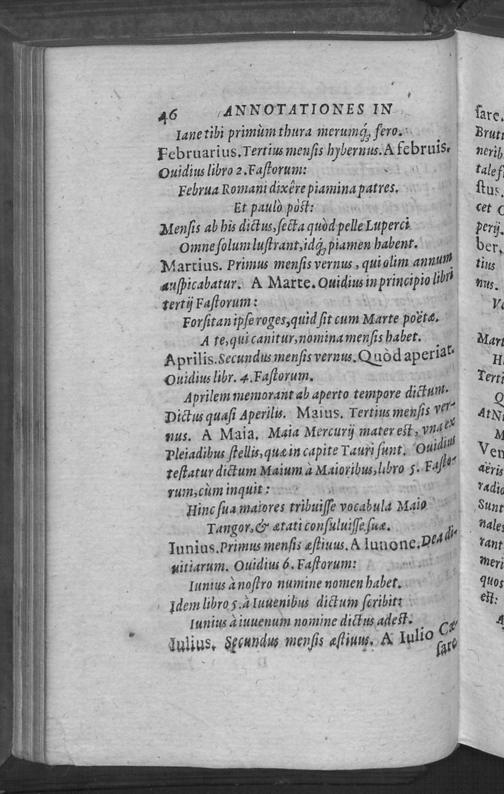 46 ANNOTATIONES IN
Iane tibi primùm thura merumq́; fero.
Februarius. Tertius mensis hybernus. A februis.
Ouidius libro 2. Fastorum:
Februa Romani dixêre piamina patres.
Et paulò pòst:
Mensis ab his dictus, secta quòd pelle Luperci
Omne solum lustrant, idq́; piamen habent.
Martius. Primus mensis vernus, qui olim annum
auspicabatur. A Marte. Ouidius in principio libri
tertij Fastorum:
Forsitan ipse roges, quid sit cum Marte poëtæ.
A te, qui canitur, nomina mensis habet.
Aprilis. Secundus mensis vernus. Quòd aperiat.
Ouidius libr. 4. Fastorum.
Aprilem memorant ab aperto tempore dictum.
Dictus quasi Aperilis. Maius. Tertius mensis ver-
nus. A Maia. Maia Mercurij mater est, vna ex
Pleiadibus stellis, quæ in capite Tauri sunt. Ouidius
testatur dictum Maium à Maioribus, libro 5. Fasto-
rum, cùm inquit:
Hinc sua maiores tribuisse vocabula Maio
Tangor, & ætati consuluisse suæ.
Iunius. Primus mensis æstiuus. A Iunone. Dea di-
uitiarum. Ouidius 6. Fastorum:
Iunius à nostro numine nomen habet.
Idem libro 5. à Iuuenibus dictum scribit:
Iunius à iuuenum nomine dictus adest.
Iulius. Secundus mensis æstiuus. A Iulio Cæ-
sare
sare.
Brut
nerib
tale f
stus.
cet O
perij.
ber.
tius
nus.
Ve
Mart
H
Terti
Q
At N
M
Ven
aëris
radio
Sunt
nales
rant
meri
quos
est:
A